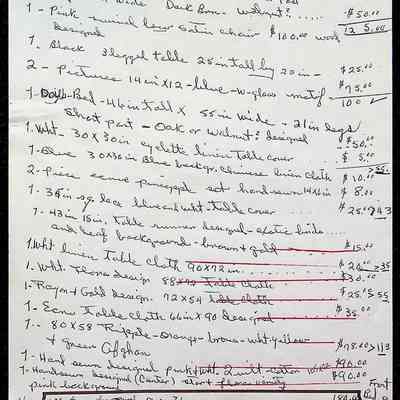 wide Dark Brn - Walnut? .....
1 - Pink swivel low satin chair $100.00 wood $50.00
designed 125.00
1. Black 3 legged table 25 in tall by 20 in - $25.00
2 - Pictures 14 in X 12 - blue - w-glass $75.00
100 ✓
1 - Bed - 46 in tall X 55 in wide - 21 in legs
Short part - Oak or Walnut? designed $50.00
1. Wht. 30 X 30 in linen Table cover $5.00 > 55.
1. Blue 30 X 30 in Blue backgr. Chinese linen cloth $10.00
2 - piece ecrue pineapple set hand sewn 14 X 16 in $8.00
1 - 36 in sq. lace blue and wht - Table cover ... $25.00 > 43
1 - 43 in 15 in. Table runner designed - birds ....
and leaf background - brown & gold $15.00
1 Wht linen Table Cloth 90 X 72 in. ..... $20.00 > 35
1. Wht. Flora design 88 X 72 Table Cloth $30.00
1 - Rayon & Gold Design. 72 X 54 Table Cloth $25.00 > 55
1 - Ecru Table Cloth 66 in X 90 designed $35.00
1 - 80 X 58 - Orange - brown - wht - yellow
& green Afghan $78.00 > 113
1 - Hand sewn designed pink & Wht. Quilt - cotton $90.00
1 - Handsewn Designed (Center) short flowers $90.00 Front
pink background 180.00